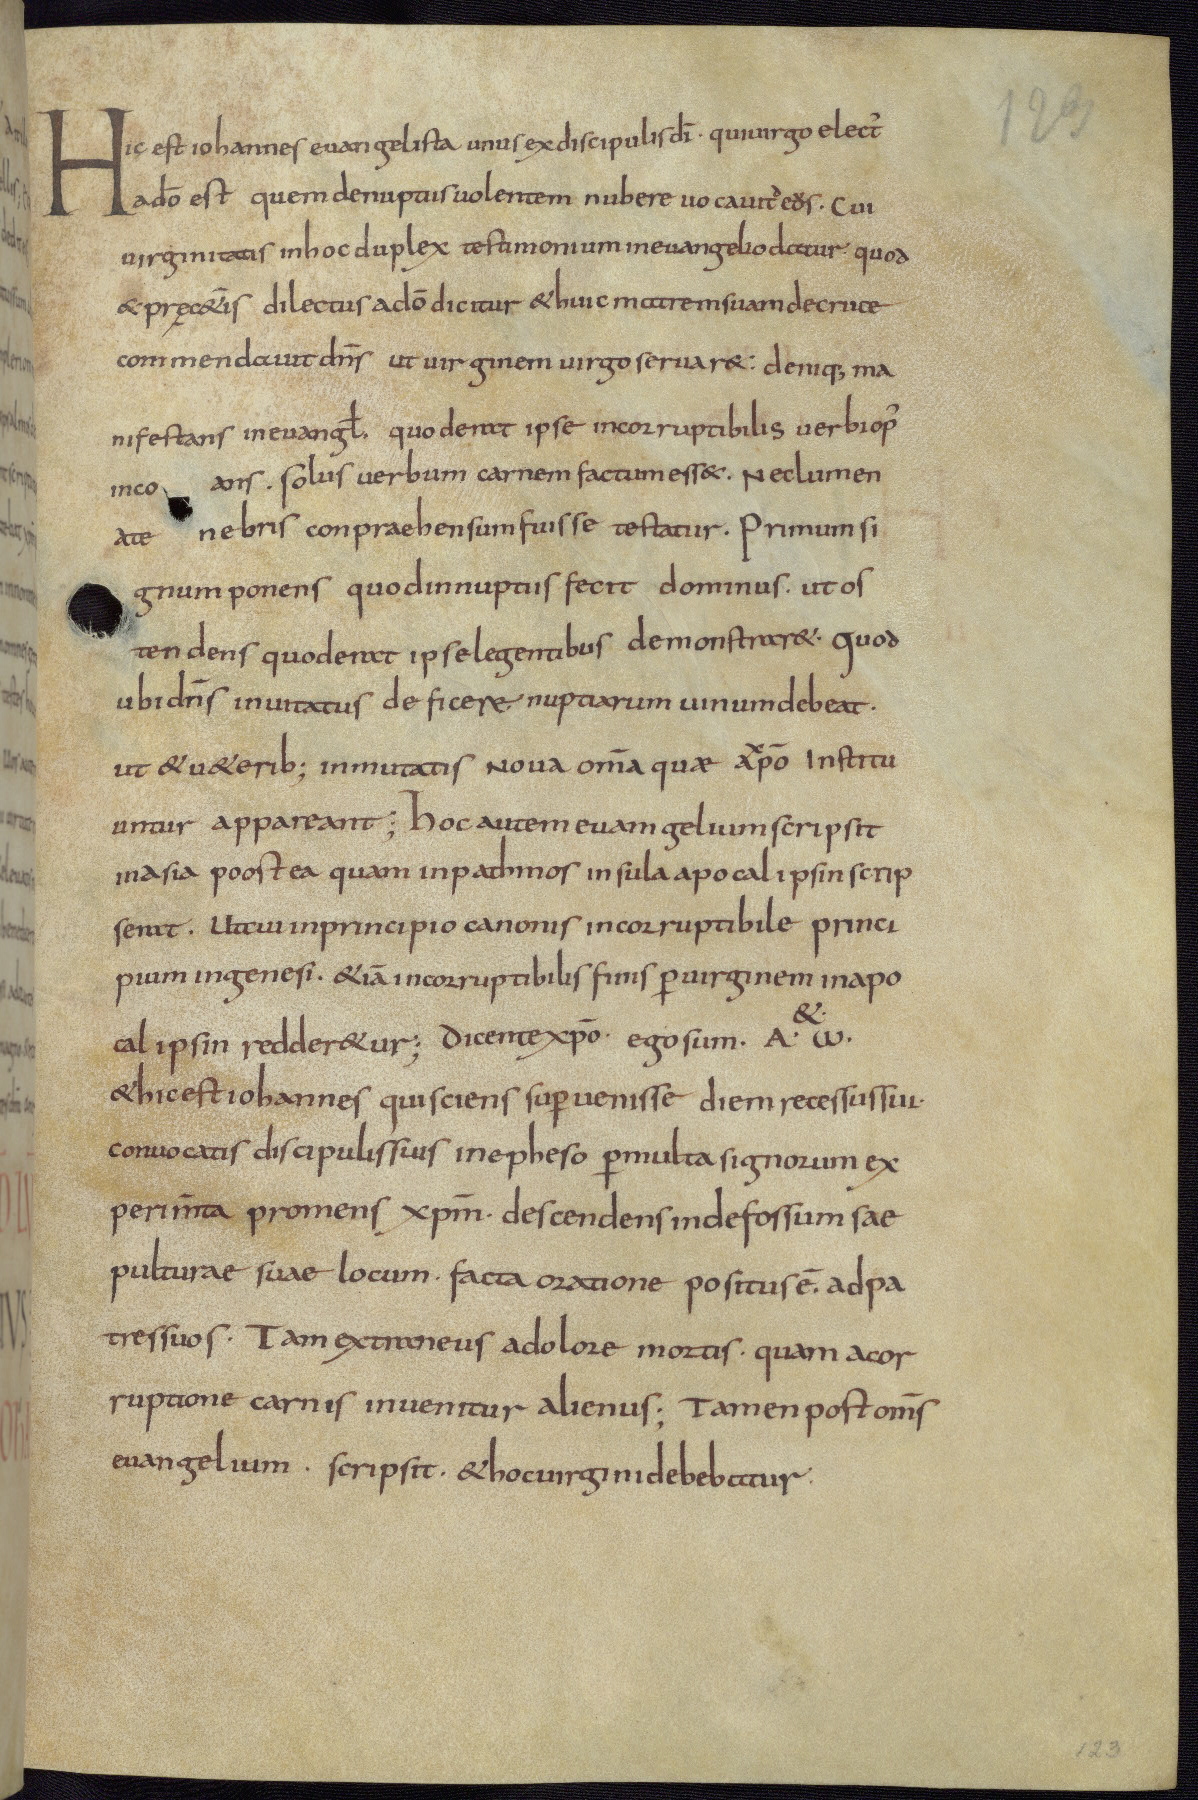 123
Hic est iohannes euangelista unus ex discipulis dī · qui uirgo elect᷒
a dō est quem de nuptiis uolentem nubere uocauit d̄s · Cui
uirginitatis in hoc duplex testimonium in euangelio datur quod
& pręc&̄is dilectus a dō dicitur & huic matrem suam de cruce
commendauit dn̄s ut uirginem uirgo seruar& : deniq; ma
nifestans in euangl̄. quod erat ipse incorruptibilis uerbi op᷒
inco ans . solus uerbum carnem factum ess&. Nec lumen
a te nebris conpraehensum fuisse testatur . Primum si
gnum ponens quod in nuptiis fecit dominus . ut os
tendens quod erat ipse legentibus demonstrar& . Quod
ubi dn̄s inuitatus deficere nuptiarum uinum debeat .
ut & u&erib; inmutatis Noua om̄a quae a xp̄o Institu
untur appareant ; hoc autem euamgelium scripsit
in asia poostea quam in pathmos insula apocalipsin scrip
serat . Ut cui in principio canonis incorruptibile princi
pium in genesi . &iā incorruptibilis finis ꝑ uirginem in apo
calipsin redder&ur ; Dicente xp̄o · ego sum . A · & ω .
& hic est iohannes qui sciens suꝑuenisse diem recessus sui ·
conuocatis discipulis suis in epheso ꝑ multa signorum ex
perim̄ta promens xpm̄ · descendens in defossum sae
pulturae suae locum · facta oratione positus ē . ad pa
tres suos · Tam extraneus a dolore mortis · quam a cor
ruptione carnis inuenitur alienus ; Tamen post om̄s
euangelium . scripsit . & hoc uirgini debebatur :
123